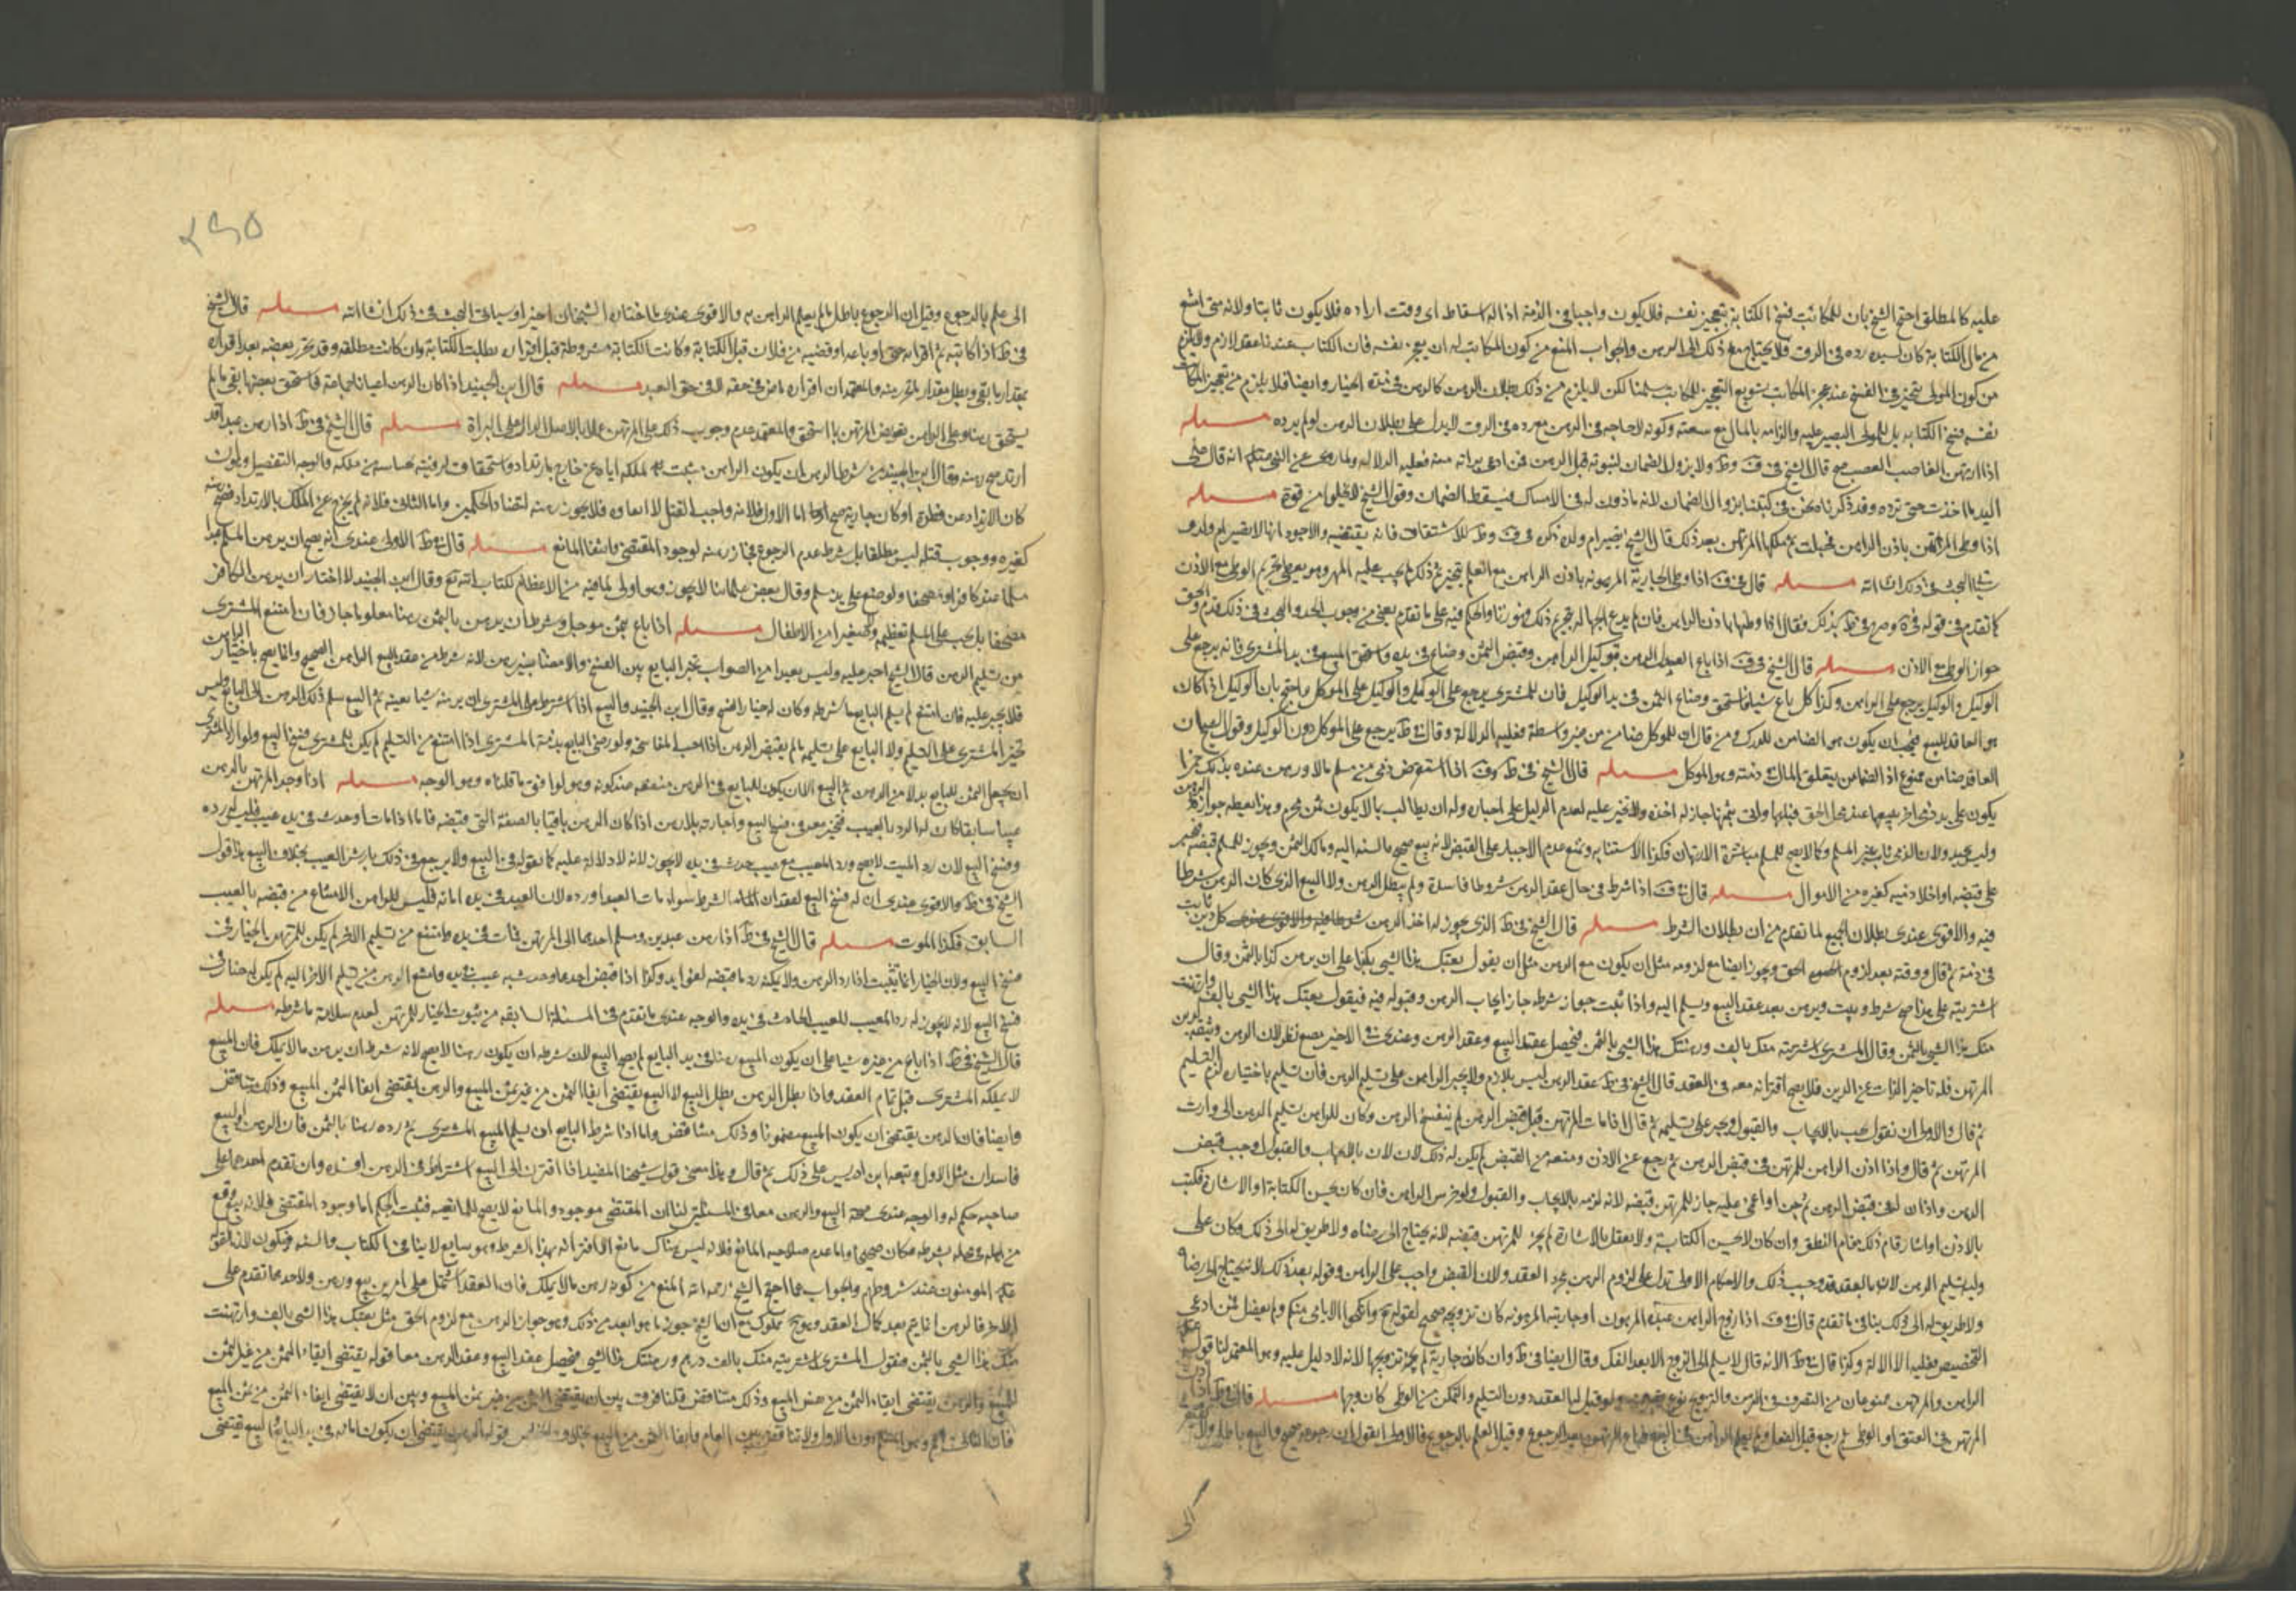 عليه كالمطلق احتج الشيخ بان للمكاتب فسخ الكتابة بتعجيز نفسه فلا يكون واجبا في الذمة اذا له اسقاط اى وقت اراده فلا يكون ثابتا ولانه متى امتنع
من مال الكتابة كان لسيده رده في الرق فلا يحتاج مع ذلك الى الرهن والجواب المنع من كون المكاتب له ان يعجز نفسه فان الكتاب عندنا عقد لازم ولا يلزم
من كون المولى يتخير في الفسخ عند عجز المكاتب تسويغ التعجيز للمكاتب سلمنا لكن لا يلزم من ذلك بطلان الرهن كالرهن في مدة الخيار وايضا فلا يلزم من تعجيز المكاتب
نفسه فسخ الكتابة بل للمولى الصبر عليه والزامه بالمال مع سعته وكونه لا حاجه في الرهن مع رده في الرق لا يدل على بطلان الرهن لو لم يرده مسئله
اذا ارتهن الغاصب الغصب صح قال الشيخ في ف وط ولا يزول الضمان لثبوته قبل الرهن فمن ادعى براته منه فعليه الدلالة ولما روى عن النبى انه قال على
اليد ما اخذت حتى تؤده وقد ذكرنا نحن في كتبنا زوال الضمان لانه ماذون له في الامساك فيسقط الضمان وقول الشيخ لا يخلوا من قوة مسئله
اذا وطى المرتهن باذن الراهن فحبلت ثم ملكها المرتهن بعد ذلك قال الشيخ تصير ام ولده ذكره في ف وط للاشتقاق فانه يقتضيه والاجود انها لا تصير ام ولد و
سياتى البحث في ذلك انشاء الله مسئله قال في ف اذا وطى الجارية المرهونه باذن الراهن مع العلم بتحريم ذلك لم يجب عليه المهر وهو يعطى تحريم الوطى مع الاذن
كما تقدم في قوله في ية وصرح في ط بذلك فقال اذا وطئها باذن الراهن فان لم يدع الجهالة بتحريم ذلك فالحكم فيه على ما تقدم يعنى من وجوب الحد والبحث في ذلك قد تقدم والحق
جواز الوطى مع الاذن مسئله قال الشيخ في ف اذا باع العدل الرهن بتوكيل الراهن وقبض الثمن وضاع في يده واستحق المبيع في يد المشترى فانه يرجع على
الوكيل والوكيل يرجع على الراهن وكذا كل باع شيئا فاستحق وضاع الثمن في يد الوكيل فان للمشترى يرجع على الوكيل والوكيل على الموكل واحتج بان الوكيل اذا كان
هو العاقد للبيع فيجب ان يكون هو الضامن للدرك ومن قال ان للموكل ضامن من غير واسطة فعليه الدلالة وقال في ط يرجع على الموكل دون الوكيل وقول ان
العاقد ضامن ممنوع اذ الضامن يتعلق المال في ذمته وهو الموكل مسئله قال الشيخ في ط وف اذا استقرض ذمى من مسلم مالا ورهن عنده بذلك خمرا
يكون على يد ذمى اخر يبيعها عند محل الحق فباعها واتى بثمنها جاز له اخذه ولا يجبر عليه لعدم الدليل على اجباره وله ان يطالب بما لا يكون ثمن محرم وهذا يعطى جواز الرهن
وليس بجيد ولان الذمى نائب عن المسلم وكما لا يصح للمسلم مباشرة الارتهان فكذا الاستنابة ونمنع عدم الاجبار على القبض لانه بيع صحيح بالنسبة اليه ومالك الثمن ويجوز للمسلم قبضه فيجبر
على قبضه او اخلاء ذمته كغيره من الاموال مسئله قال في ف اذا شرط في حال عقد الرهن شروطا فاسدة لم يبطل الرهن ولا البيع الذى كان الرهن شرطا
فيه والاقوى عندى بطلان الجميع لما تقدم من ان بطلان الشرط مسئله قال الشيخ في ط الذى يجوز له اخذ الرهن كل دين ثابت
في ذمة ثم قال ووقته بعد لزوم الحق ويجوز ايضا مع لزومه مثل ان يكون مع الرهن مثل ان يقول بعتك هذا الشى بكذا على ان يرهن كذا بالثمن وقال
اشتريته على هذا صح شرط ويثبت ويرهن بعد عقد البيع ويسلم اليه واذا ثبت جواز شرطه جاز ايجاب الرهن وقبوله فيه فيقول بعتك هذا الشى بالف وارتهنت
منك هذا الشى بالثمن وقال المشترى اشتريته منك بالف ورهنتك هذا الشى بالثمن فيحصل عقد البيع وعقد الرهن وعندى في الاخير نظر لان الرهن وثيقة لدين
المرتهن فله تاخير عن الدين فلا يصح اقترانه معه في العقد قال الشيخ في ط عقد الرهن ليس بلازم ولا يجبر الراهن على تسليم الرهن فان تسليم باختياره لزم التسليم
ثم قال والاولى ان نقول يجب بالايجاب والقبول ويجبر على تسليمه ثم قال اذا مات المرتهن قبل قبض الرهن لم ينفسخ الرهن وكان للراهن تسليم الرهن الى وارث
المرتهن ثم قال واذا اذن الراهن للمرتهن في قبض الرهن ثم رجع عن الاذن ومنعه من القبض لم يكن له ذلك لان بالايجاب والقبول وجب قبض
الرهن واذا اذن له في قبض الرهن ثم جن او اغمى عليه جاز للمرتهن قبضه لانه لزمه بالايجاب والقبول ولو خرس الراهن فان كان يحسن الكتابة او الاشارة فكتب
بالاذن او اشار قام ذلك مقام النطق وان كان لا يحسن الكتابة ولا يعقل بالاشارة لم يجز للمرتهن قبضه لانه يحتاج الى رضاه ولا طريق له الى ذلك وكان على
وليه تسليم الرهن لانه بالعقد قد وجب ذلك والاحكام الاولى تدل على لزوم الرهن بمجرد العقد ولان القبض واجب على الراهن وقوله بعد ذلك لانه يحتاج الى رضاه
ولا طريق له الى ذلك ينافى ما تقدم قال في ف اذا زوج الراهن عبده المرهون او جاريته المرهونه كان تزويجه صحيحا لقوله تع وانكحوا الايامى منكم ولم يفصل فمن ادعى
التخصيص فعليه الدلالة وكذا قال في ط الا انه قال لا يسلم الى الزوج الا بعد الفك وقال ايضا في ط وان كانت جارية لم يجز تزويجها لانه لا دليل عليه وهو المعتمد لنا قوله
الراهن والمرتهن ممنوعان من التصرف في الرهن والتزويج نوع ولو قيل لها العقد دون التسليم والتمكن من الوطى كان وجها مسئله قال في ط اذا اذن
المرتهن في العتق او الوطى ثم رجع قبل الفعل ولم يعلم الراهن بعد الرجوع وقبل العلم بالرجوع فالاولى ان نقول ان رجوعه صحيح والبيع باطل ولا
الى
٢٩٥
الى علم بالرجوع وقيل ان الرجوع باطل ما لم يعلم الراهن به والاقوى عندى ما اختاره الشيخان اخيرا وسياتى البحث في ذلك انشاء الله مسئله قال الشيخ
في ط اذا كاتبه ثم اقر انه جنى او باعه او غصبه من فلان قبل الكتابة وكانت الكتابة مشروطة قبل اقراره بطلت الكتابة وان كانت مطلقه وقد تحرر بعضه بعد اقراره
بمقدار ما بقى وبطل مقدار ما تحرر منه والمعتمد ان اقراره ماض في حقه لا في حق العبد مسئله قال ابن الجنيد اذا كان الرهن اعيانا لجماعة فاستحق بعضها بقى ما لم
يستحق رهنا وعلى الراهن تعويض المرتهن بما استحق والمعتمد عدم وجوب ذلك على المرتهن عملا بالاصل الدال على البراة مسئله قال الشيخ في ط اذا رهن عبدا قد
ارتد صح رهنه وقال ابن الجنيد من شرط الرهن ان يكون الراهن مثبت لملكه اياه غير خارج بارتداد واستحقاق لرقبته من ملكه والوجه التفصيل ولو
كان الارتداد عن فطرة او كان جارية صح اما الاول فلانه واجب القتل لا ابقاء له فلا يجوز رهنه لتضاد الحكمين واما الثانى فلانه لم يخرج عن الملك بالارتداد فصح رهنه
كغيره ووجوب قتله ليس مطلقا بل بشرط عدم الرجوع فجاز رهنه لوجود المقتضى وانتفاء المانع مسئله قال في ط الاولى عندى انه يصح ان يرهن المسلم عبدا
مسلما عند كافر او مصحفا ولو وضع على يد مسلم وقال بعض علمائنا لا يجوز وهو اولى لما فيه من الاعظام لكتاب الله تع وقال ابن الجنيد لا اختار ان يرهن الكافر
مصحفا بل يجب على المسلم تعظيمه ولا صغيرا من الاطفال مسئله اذا باع بثمن موجل وشرط ان يرهن بالثمن رهنا معلوما جاز فان امتنع المشترى
من تسليم الرهن قال الشيخ اجبر عليه وليس بعيدا من الصواب تخير البايع بين الفسخ والامضاء بغير رهن لانه شرط من عقد البيع الراهن الصحيح وانما يصح باختيار الراهن
فلا يجبر عليه فان امتنع لم يسلم البايع ما شرطه وكان له خيار الفسخ وقال ابن الجنيد والبيع اذا شرط على المشترى ان يرهنه شيا بعينه ثم البيع سلم ذلك الرهن الى البايع وليس
تخير المشترى على التسليم ولا البايع على تسليمه ما لم يقبض الرهن اذا احب المفاسخه ولو رضى البايع بذمة المشترى اذا امتنع من التسليم لم يكن للمشترى فسخ البيع ولو اراد المشترى
ان يجعل الثمن للبايع بدلا من الرهن ثم البيع الا ان يكون للبايع في الرهن منفعه وهو الموافق ما قلناه وهو الوجه مسئله اذا وجد المرتهن بالرهن
عيبا سابقا كان له الرد بالعيب فيتخير في فسخ البيع واجازته بلا رهن اذا كان الرهن باقيا بالصفة التى قبضه فاما اذا مات او حدث في يده عيب فليس له رده
وفسخ البيع لان رد الميت لا يصح ورد المعيب مع عيب حدث في يده لا يجوز لانه لا دلالة عليه كما نقوله في البيع ولا يرجع في ذلك بارش العيب بخلاف البيع هذا قول
الشيخ في ط والاقوى عندى ان له فسخ البيع لفقدان الشرط سواء مات العبد او رده لان العبد في يده امانة فليس للراهن الامتناع من قبضه بالعيب
السابق فكذا الموت مسئله قال الشيخ في ط اذا رهن عبدين وسلم احدهما الى المرتهن فمات في يده وامتنع من تسليم الاخر لم يكن للمرتهن الخيار في
فسخ البيع ولان الخيار انما يثبت اذا رد الرهن ولا يمكنه رد ما قبضه لفواته وكذا اذا قبض احدهما وحدث به عيب في يده وامتنع الراهن من تسليم الاخر اليه لم يكن له خيار في
فسخ البيع لانه لا يجوز له رد المعيب للعيب الحادث في يده والوجه عندى ما تقدم في المسئلة السابقه من ثبوت الخيار للمرتهن لعدم سلامة ما شرطه مسئله
قال الشيخ في ط اذا باع من غيره شيا على ان يكون المبيع رهنا في يد البايع لم يصح البيع لان شرطه ان يكون رهنا لا يصح لانه شرط ان يرهن ما لا يملك فان المبيع
لا يملكه المشترى قبل تمام العقد واذا بطل الرهن بطل البيع لان البيع يقتضى ايفاء الثمن من غير ثمن المبيع والرهن يقتضى ايفاء الثمن المبيع وذلك متناقض
وايضا فان الرهن يقتضى ان يكون المبيع مضمونا وذلك متناقض واما اذا شرط البايع ان يسلم المبيع المشترى ثم رده رهنا بالثمن فان الرهن والبيع
فاسدان مثل الاول وتبعه ابن ادريس على ذلك ثم قال وهذا معنى قول شيخنا المفيد اذا اقترن الى البيع اشتراط في الرهن افسده وان تقدم احدهما على
صاحبه حكم له والوجه عندى صحة البيع والرهن معا في المسئلتين لنا ان المقتضى موجود والمانع لا يصلح للمانعيه فيثبت الحكم اما وجود المقتضى فلانه بيع وقع
من اهله في محله بشرطه فكان صحيحا واما عدم صلاحيه المانع فلانه ليس هناك مانع الا اقترانه بهذا الشرط وهو سايغ لا ينافى الكتاب والسنه فيكون لازما لقوله
عليه المومنون عند شروطهم والجواب عما احتج الشيخ رحمه الله المنع من كونه رهن ما لا يملك فان العقد اشتمل على امرين بيع ورهن ولاحدهما تقدم على
الاخر فالرهن انما يتم بعد كمال العقد وهو ح مملوك مع ان الشيخ جوز ما هو ابعد من ذلك وهو جواز الرهن مع لزوم الحق مثل بعتك هذا الشى بالف وارتهنت
منك هذا الشى بالثمن فيقول المشترى اشتريته منك بالف درهم ورهنتك هذا الشى فيحصل عقد البيع وعقد الرهن معا قوله يقتضى ايفاء الثمن من غير ثمن
المبيع والرهن يقتضى ايفاء الثمن من المبيع وذلك متناقض قلنا فرق بين ان يقتضى الثمن من غير ثمن المبيع وبين ان لا يقتضى ايفاء الثمن من ثمن المبيع
فان الثانى اعم وهو المسلم دون الاول ولا تناقض بين العام وايفاء الثمن من المبيع بخلاف قوله الرهن يقتضى ان يكون امانة في يد البايع والبيع يقتضى